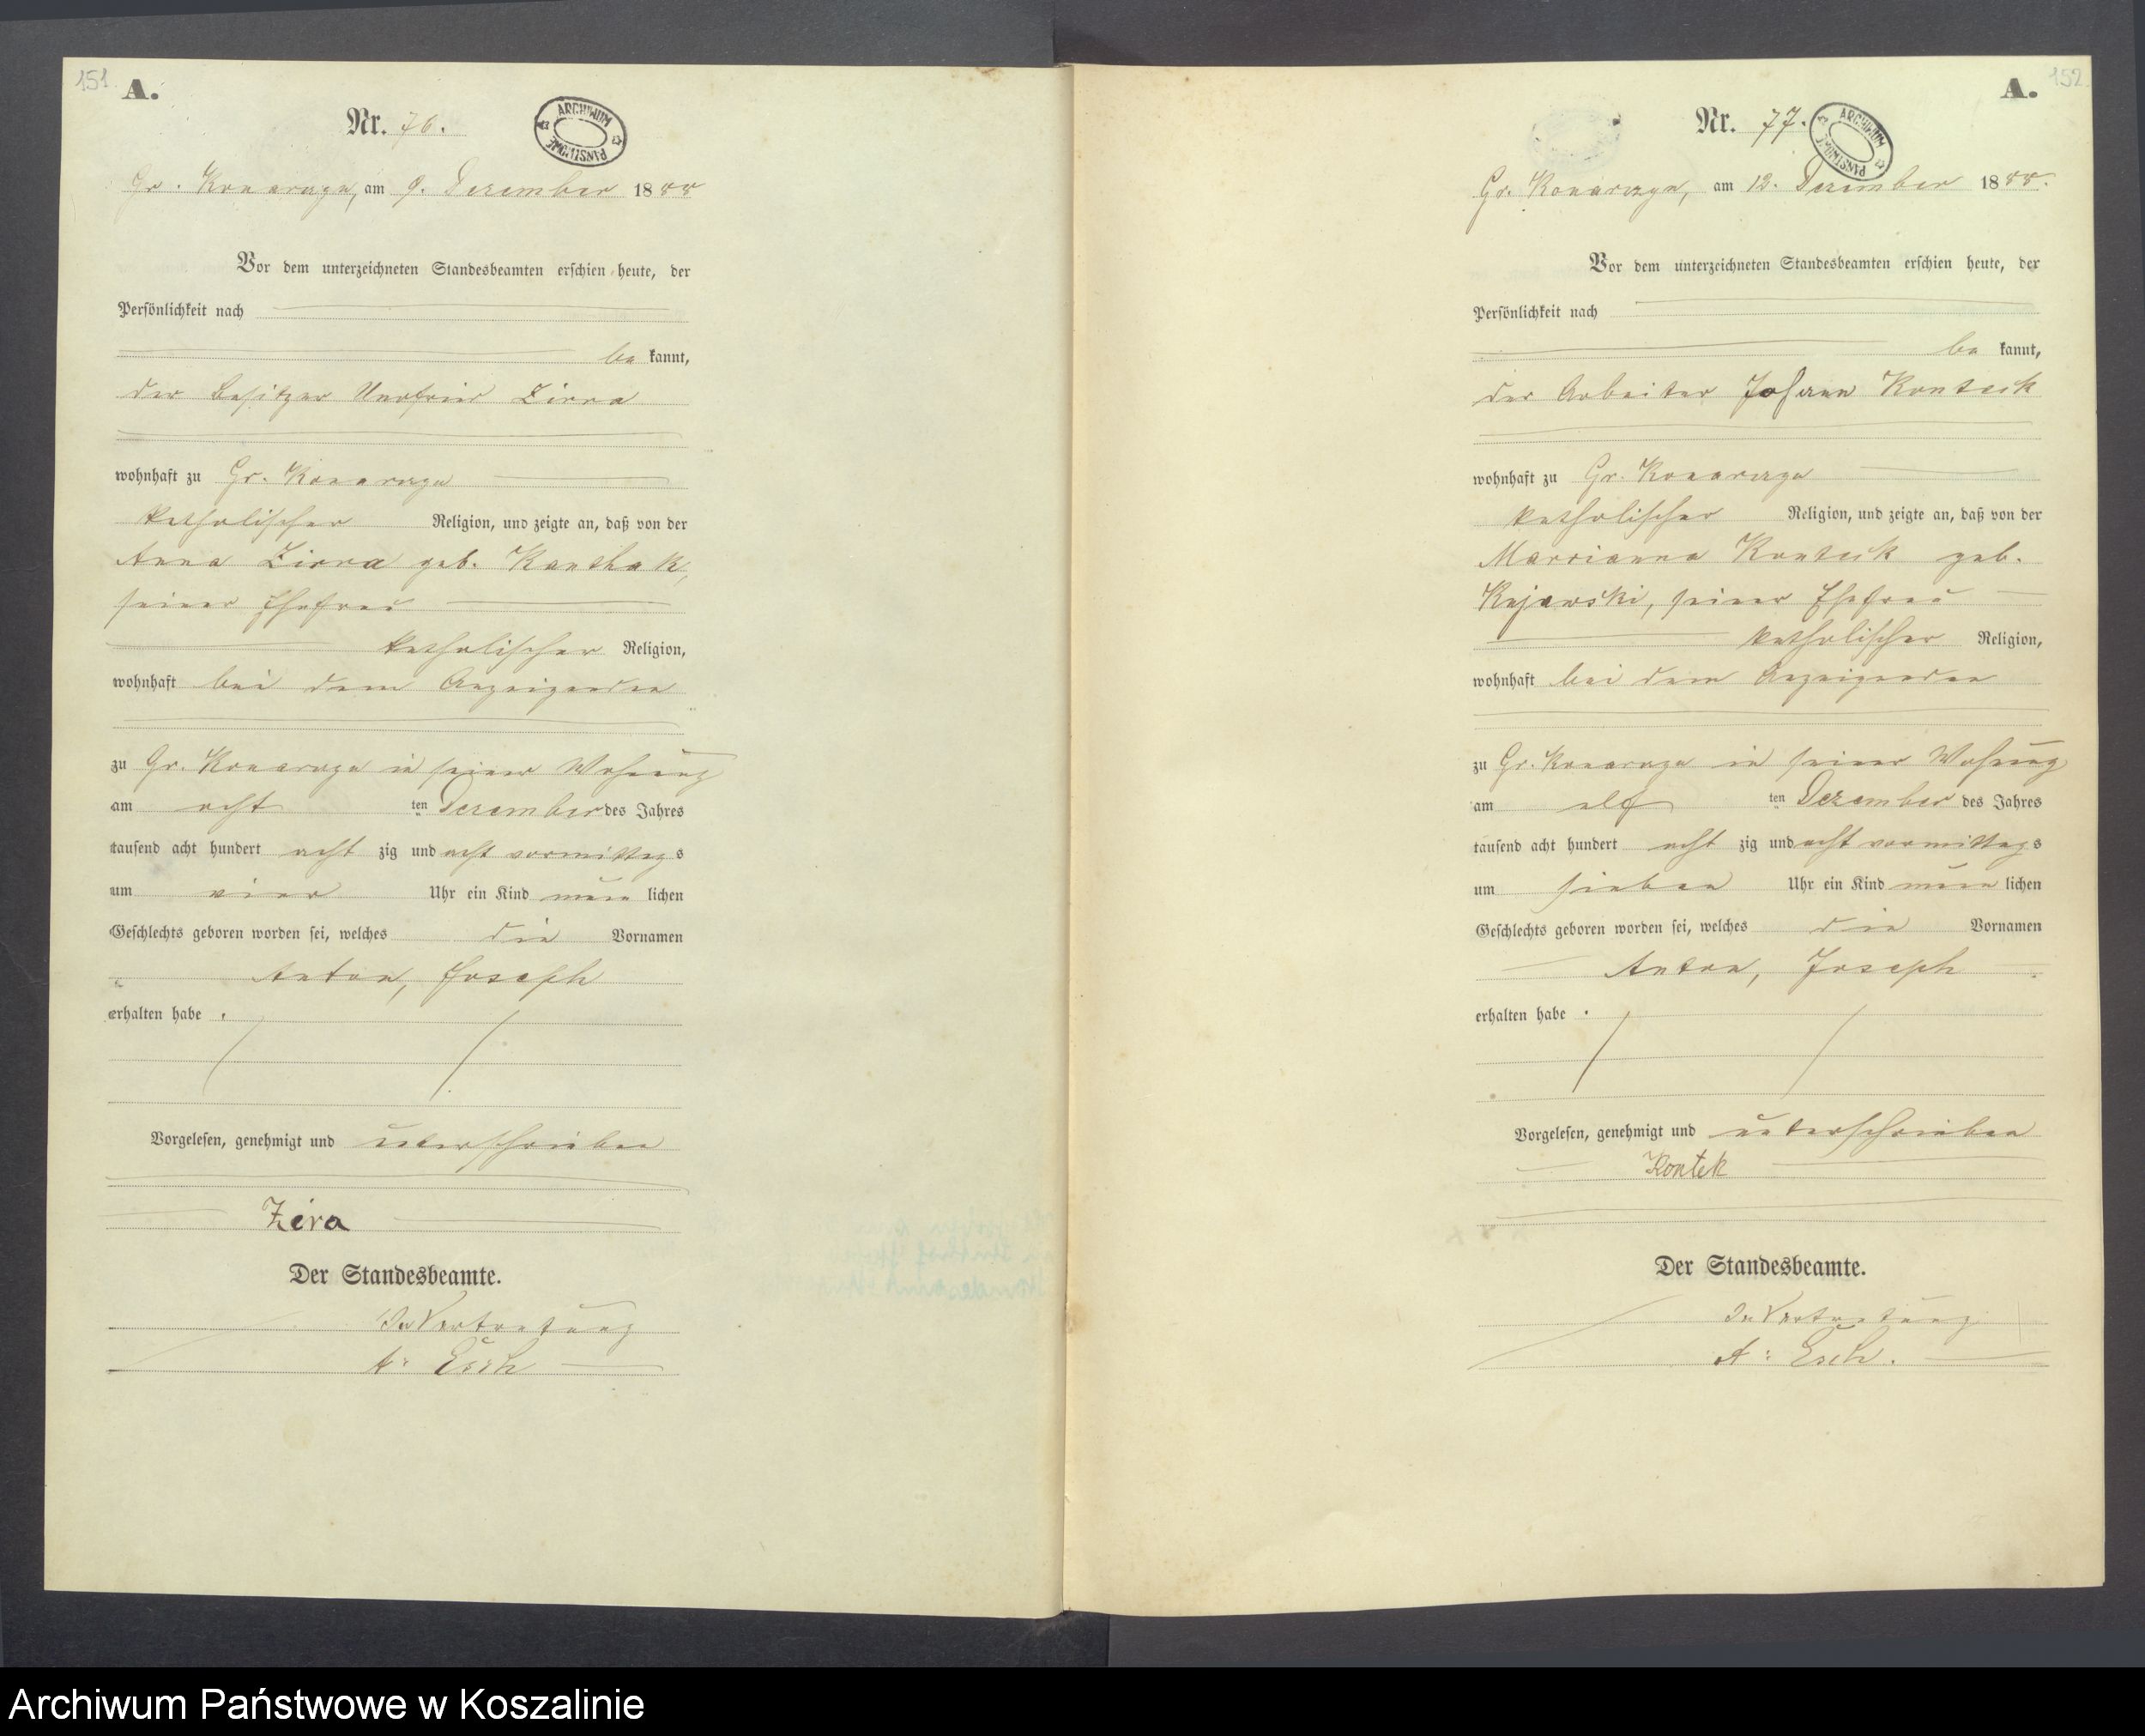 151
A.
Nr. 76.
ARCHIWUM PAŃSTWOWE
Gr. Konarczyn, am 9. Dezember 1888
Vor dem unterzeichneten Standesbeamten erschien heute, der
Persönlichkeit nach
be kannt,
der Besitzer Zirra
wohnhaft zu Gr. Konarczyn
katholischer Religion, und zeigte an, daß von der
Anna Zirra geb. Kanthak,
seiner Ehefrau
katholischer Religion,
wohnhaft bei dem Anzeigenden
zu Gr. Konarczyn in seiner Wohnung
am acht ten Dezember des Jahres
tausend acht hundert acht zig und acht vormittags
um vier Uhr ein Kind männ lichen
Geschlechts geboren worden sei, welches die Vornamen
Anton, Joseph
erhalten habe.
Vorgelesen, genehmigt und unterschrieben
Zira
Der Standesbeamte.
In Vertretung
A: Esch
152
A.
Nr. 77.
ARCHIWUM PAŃSTWOWE
Gr. Konarczyn, am 12. Dezember 1888.
Vor dem unterzeichneten Standesbeamten erschien heute, der
Persönlichkeit nach
be kannt,
der Arbeiter Johann Kontek
wohnhaft zu Gr. Konarczyn
katholischer Religion, und zeigte an, daß von der
Marrianna Kontek geb.
Kujawski, seiner Ehefrau
katholischer Religion,
wohnhaft bei dem Anzeigenden
zu Gr. Konarczyn in seiner Wohnung
am elf ten Dezember des Jahres
tausend acht hundert acht zig und acht vormittags
um sieben Uhr ein Kind männ lichen
Geschlechts geboren worden sei, welches die Vornamen
Anton, Joseph
erhalten habe.
Vorgelesen, genehmigt und unterschrieben
Kontek
Der Standesbeamte.
In Vertretung
A: Esch.
Archiwum Państwowe w Koszalinie